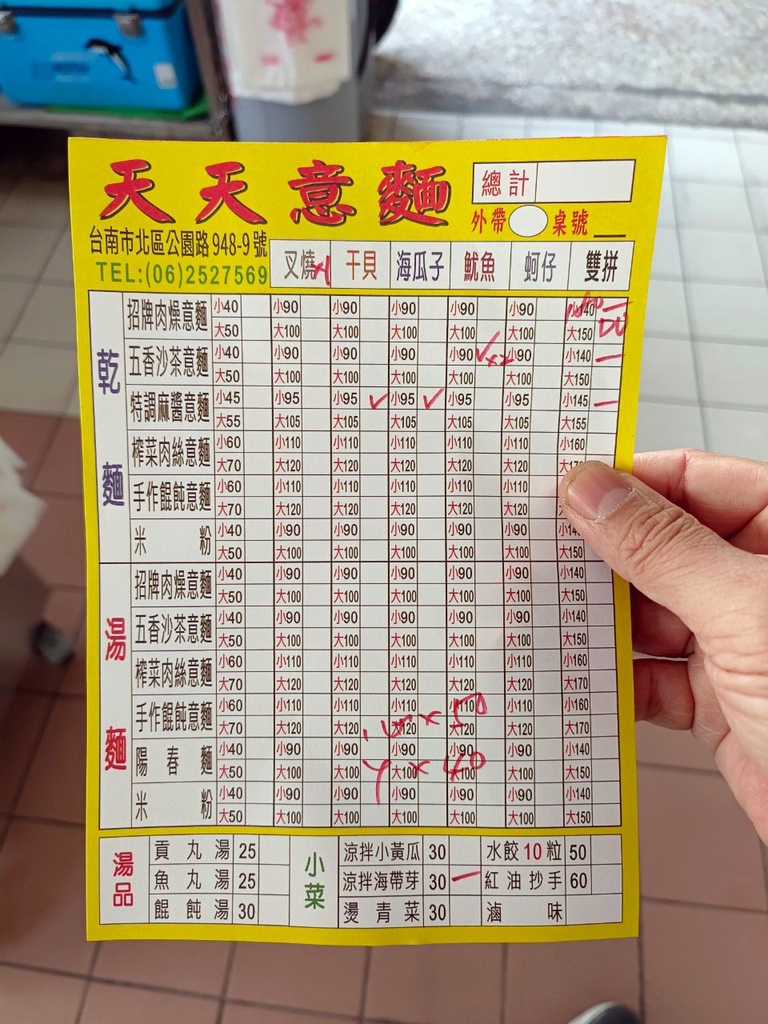 天天意麵
總計
外帶 桌號
台南市北區公園路948-9號
TEL:(06)2527569
叉燒 干貝 海瓜子 魷魚 蚵仔 雙拼
乾麵
招牌肉燥意麵 小40 小90 小90 小90 小90 小90 小140
大50 大100 大100 大100 大100 大100 大150
五香沙茶意麵 小40 小90 小90 小90 小90 小90 小140
大50 大100 大100 大100 大100 大100 大150
特調麻醬意麵 小45 小95 小95 小95 小95 小95 小145
大55 大105 大105 大105 大105 大105 大155
榨菜肉絲意麵 小60 小110 小110 小110 小110 小110 小160
大70 大120 大120 大120 大120 大120
手作餛飩意麵 小60 小110 小110 小110 小110 小110
大70 大120 大120 大120 大120 大120
米粉 小40 小90 小90 小90 小90 小90
大50 大100 大100 大100 大100 大100 大150
湯麵
招牌肉燥意麵 小40 小90 小90 小90 小90 小90 小140
大50 大100 大100 大100 大100 大100 大150
五香沙茶意麵 小40 小90 小90 小90 小90 小90 小140
大50 大100 大100 大100 大100 大100 大150
榨菜肉絲意麵 小60 小110 小110 小110 小110 小110 小160
大70 大120 大120 大120 大120 大120 大170
手作餛飩意麵 小60 小110 小110 小110 小110 小110 小160
大70 大120 大120 大120 大120 大120 大170
陽春麵 小40 小90 小90 小90 小90 小90 小140
大50 大100 大100 大100 大100 大100 大150
米粉 小40 小90 小90 小90 小90 小90 小140
大50 大100 大100 大100 大100 大100 大150
湯品
貢丸湯 25
魚丸湯 25
餛飩湯 30
小菜
涼拌小黃瓜 30 水餃10粒 50
涼拌海帶芽 30 紅油抄手 60
燙青菜 30 滷味